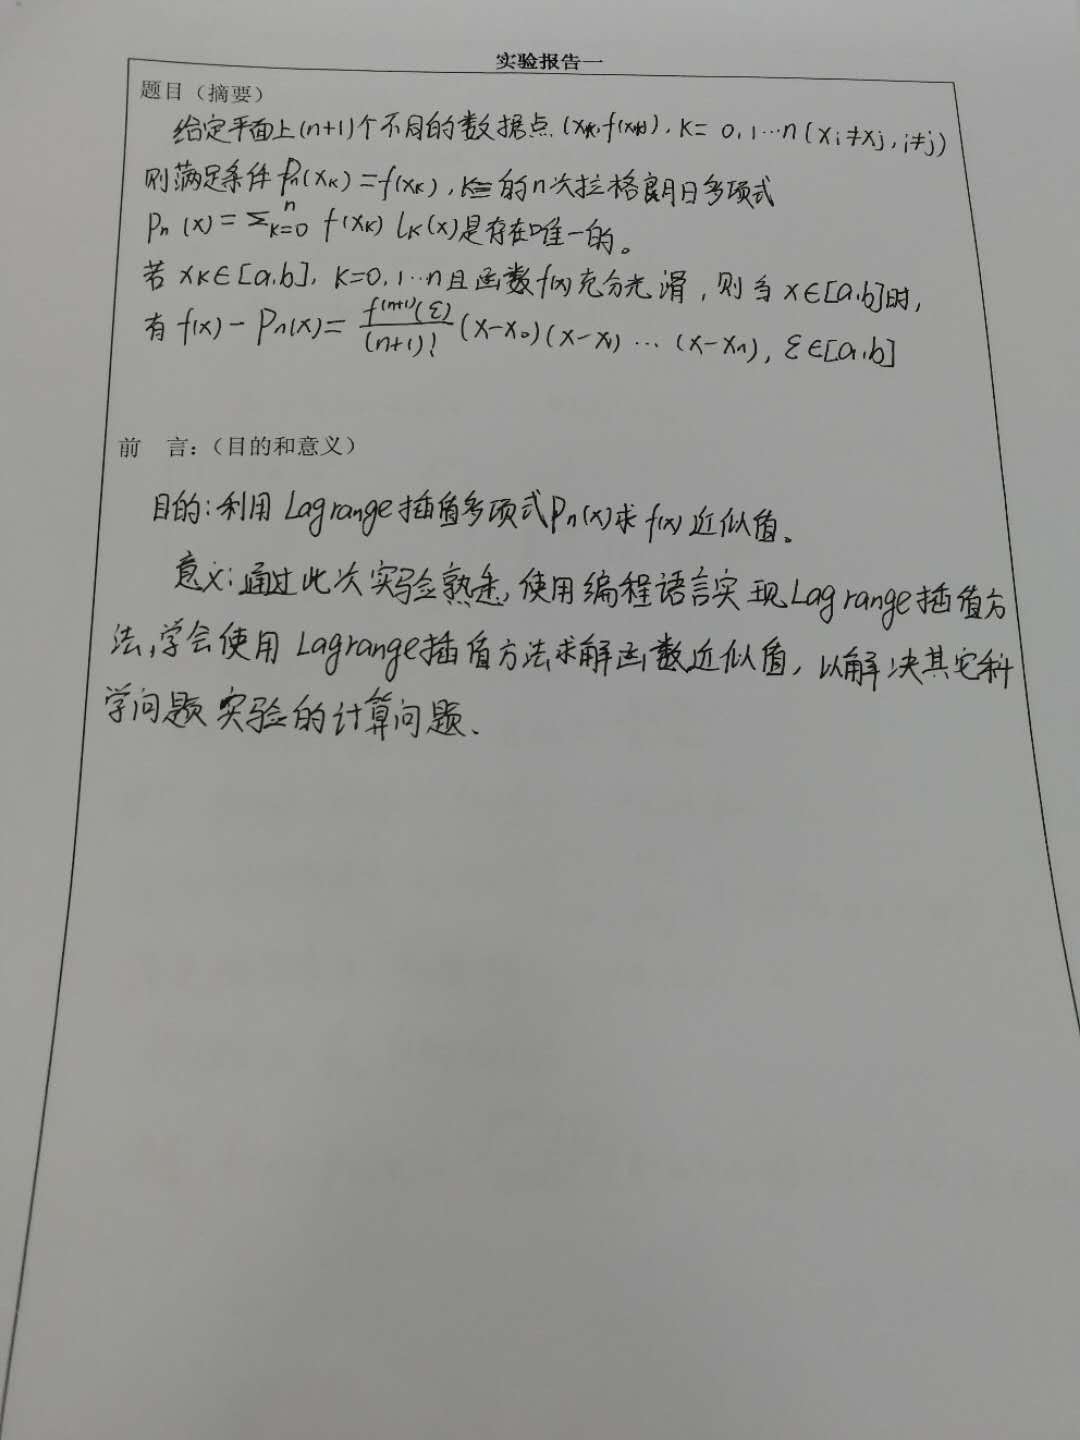 实验报告一
题目（摘要）
给定平面上(n+1)个不同的数据点(xk,f(xk)),K=0,1…n(xi≠xj,i≠j)
则满足条件Pn(xK)=f(xK),K=的n次拉格朗日多项式
Pn(x)=Σ_{K=0}^{n} f(xK) lK(x)是存在唯一的。
若xK∈[a,b],K=0,1…n且函数f(x)充分光滑,则当x∈[a,b]时,
有f(x)-Pn(x)=f^(n+1)(ξ)/(n+1)! (x-x0)(x-x1)…(x-xn),ξ∈[a,b]
前 言:（目的和意义）
目的:利用Lagrange插值多项式Pn(x)求f(x)近似值。
意义:通过此次实验熟悉,使用编程语言实现Lagrange插值方
法,学会使用Lagrange插值方法求解函数近似值,以解决其它科
学问题实验的计算问题.